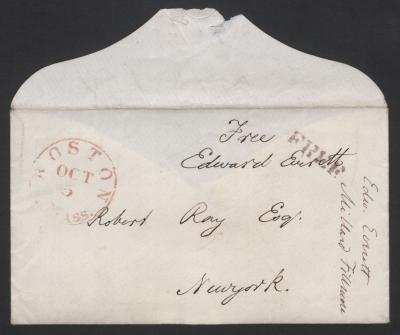 BOSTON
OCT
5
MASS.
Free
Edward Everett
FREE
Robert Ray Esq.
Newyork.
Edw. Everett
Millard Fillmore